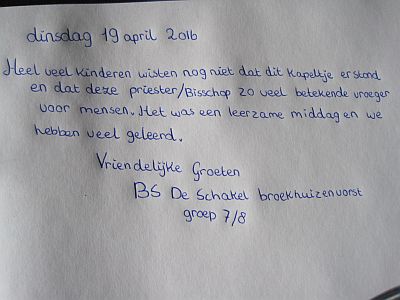 dinsdag 19 april 2016
Heel veel kinderen wisten nog niet dat dit kapeltje er stond
en dat deze priester/Bisschop zo veel betekende vroeger
voor mensen. Het was een leerzame middag en we
hebben veel geleerd.
Vriendelijke Groeten
BS De Schakel broekhuizenvorst
groep 7/8